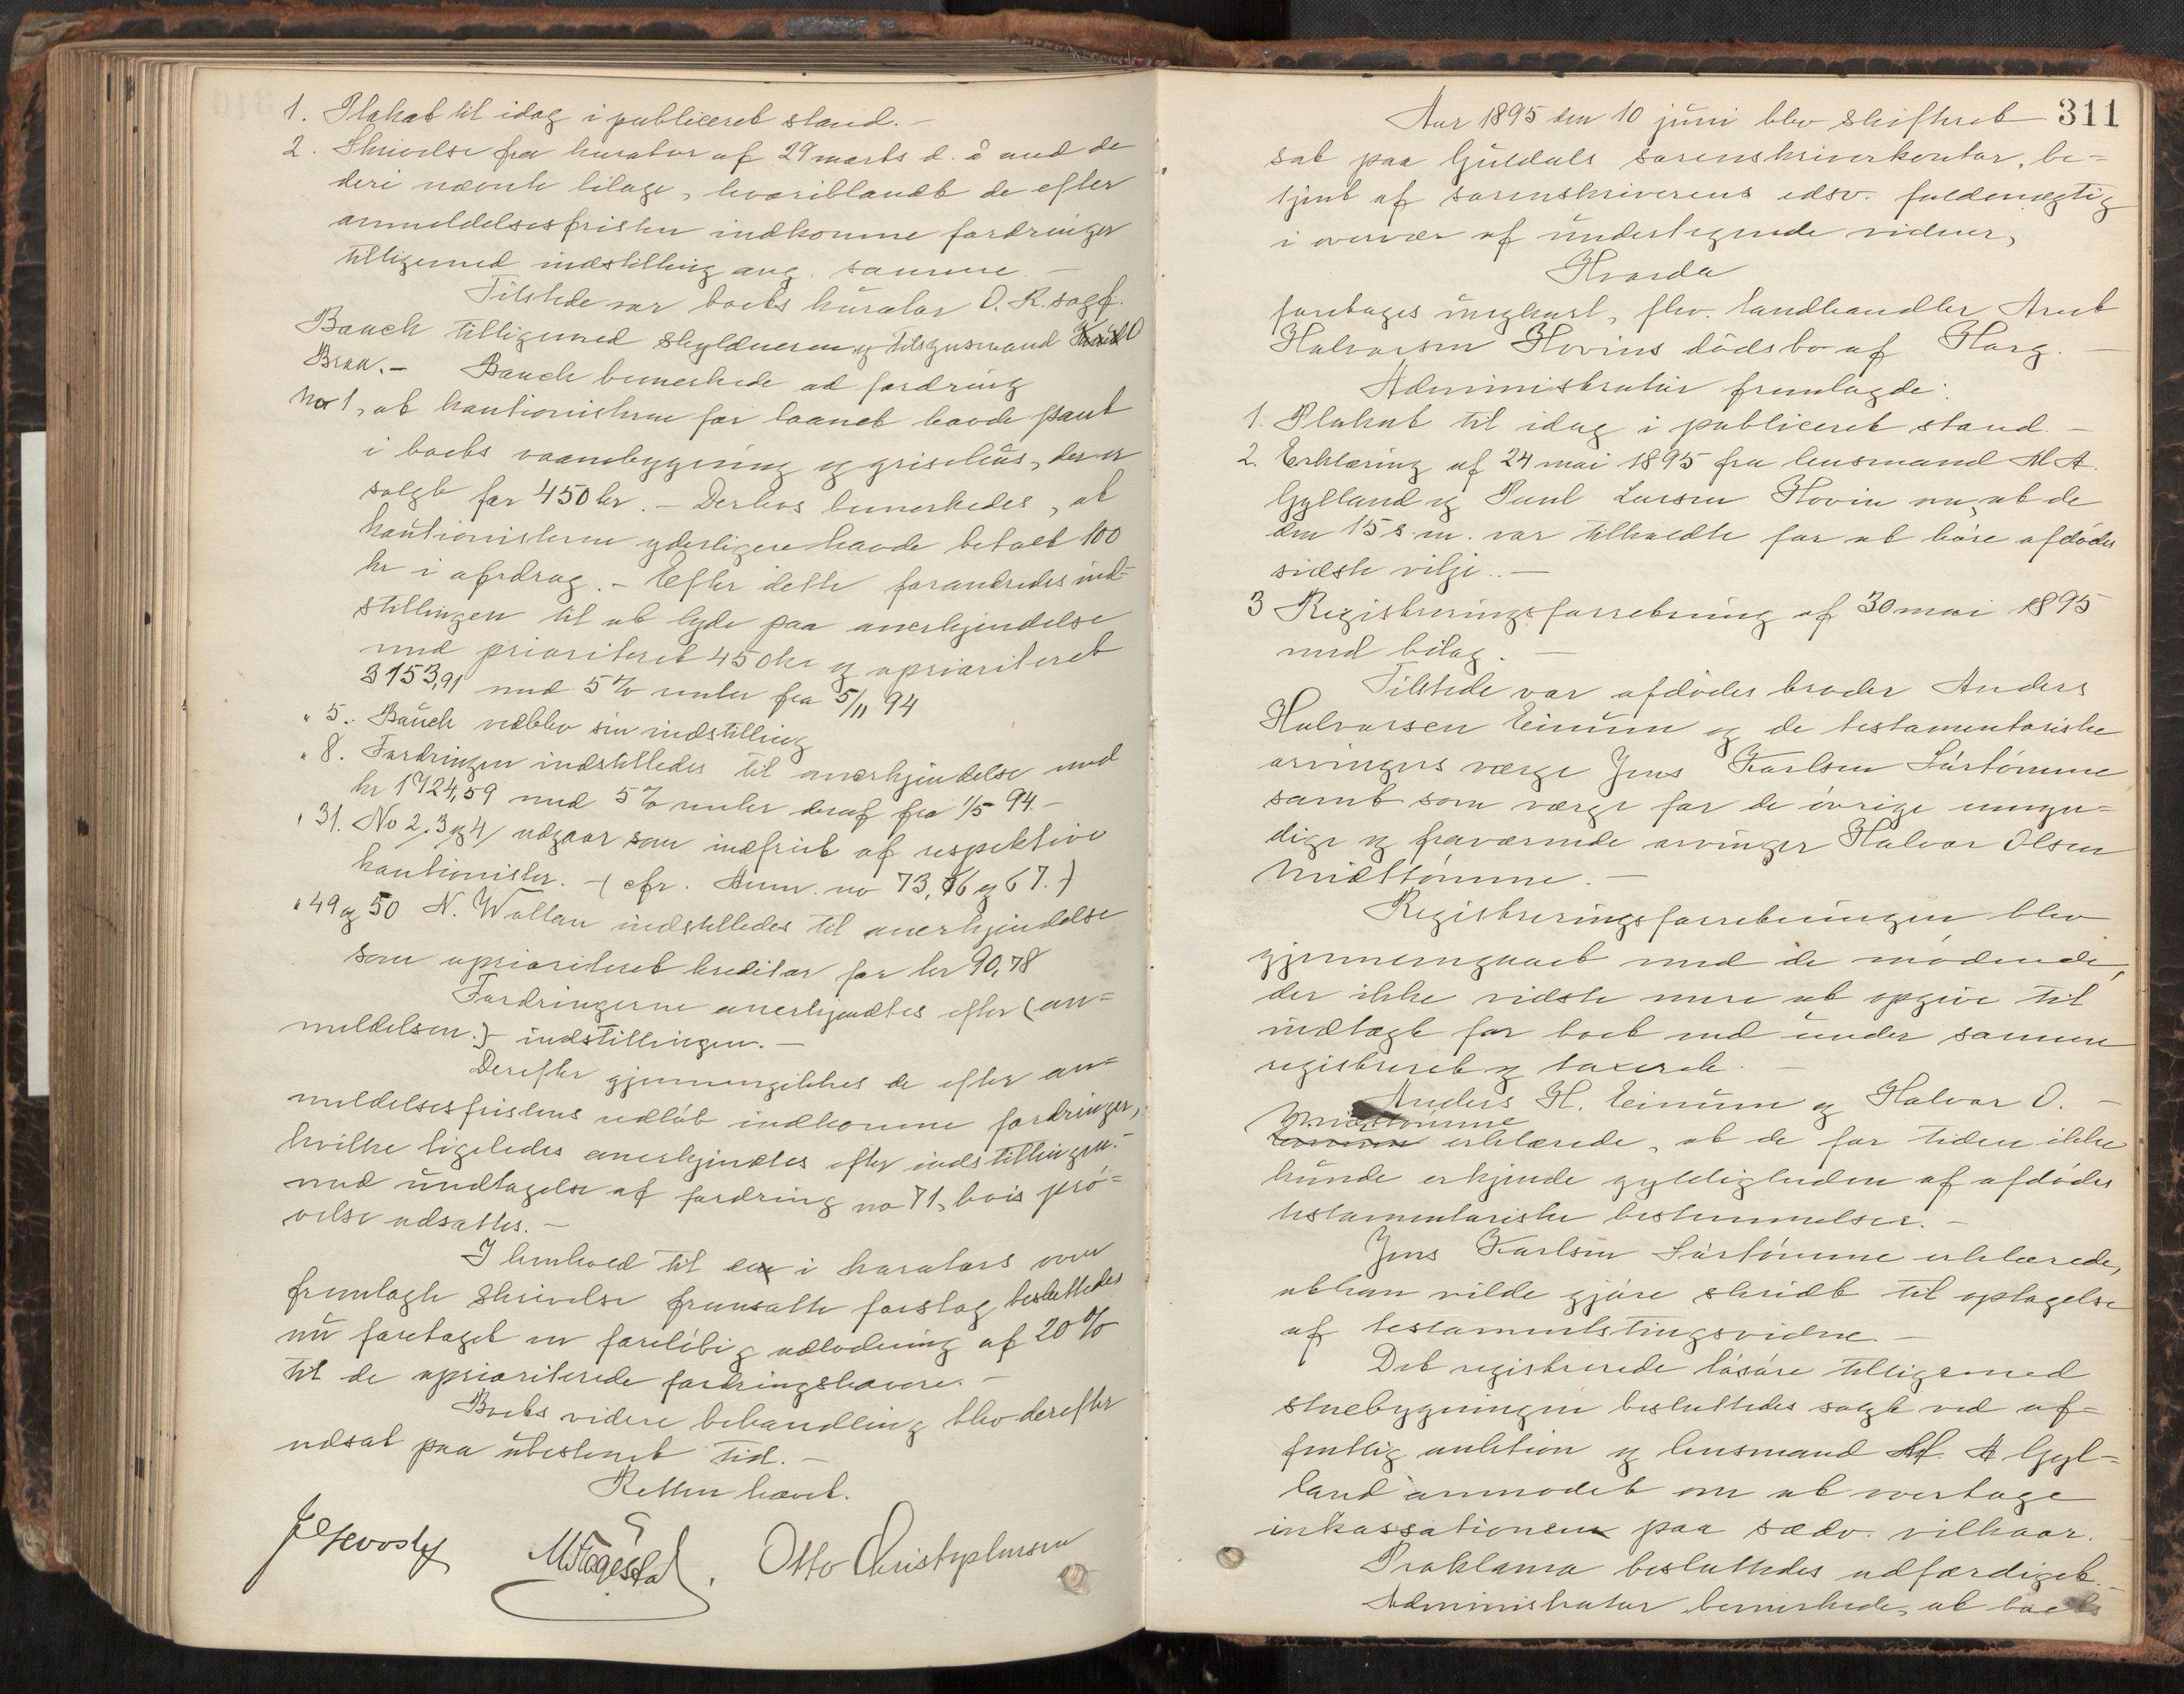 1. Plakat til idag i publiceret stand. —
2. Skrivelse fra kurator af 29 marts d. å med de
deri nævnte bilage, hvoriblandt de efter
anmeldelsesfristen indkomne fordringer
tilligemed indstilling ang. samme. —
Tilstede var boets kurator O. R. sagf.
Bauck tilligemed skyldneren og tilsynsmand O
Braa. — Bauck bemerkede ad fordring
No 1, at kautionisterne for laanet havde pant
i boets vaanebygning og grisehus, der er
solgt for 450 kr. — Derhos bemerkedes, at
kautionisterne yderligere havde betalt 100
kr i afdrag. — Efter dette forandredes ind=
stillingen til at lyde paa anerkjendelse
med prioriteret 450 kr og uprioriteret
3153,91 med 5 % renter fra 5/11 94
" 5. Bauck vedblev sin indstilling
" 8. Fordringen indstilledes til anerkjendelse med
kr 1724,59 med 5 % renter deraf fra 1/5 94. —
" 31. No 2, 3 og 4, udgaar som indfriet af respektive
kautionister. — (cfr. Anm. no 73, 76 og 67.)
" 49 og 50 N. Wollan indstilledes til anerkjendelse
som uprioriteret kreditor for kr 90,78
Fordringerne anerkjendtes efter (an=
meldelsen.) indstillingen. —
Derefter gjennemgikkes de efter an=
meldelsesfristens udløb indkomne fordringer,
hvilke ligeledes anerkjendtes efter indstillingen. —
med undtagelse af fordring no 71, hvis prø=
velse udsattes. —
I henhold til en i kurators oven
fremlagte skrivelse fremsatte forslag besluttedes
nu foretaget en foreløbig udlodning af 20 %
til de uprioriterede fordringshavere. —
Boets videre behandling blev derefter
udsat paa ubestemt tid. —
Retten hævet.
Otto Christophersen
311
Aar 1895 den 10 juni blev skifteret
sat paa Guldals sorenskriverkontor, be=
tjent af sorenskriverens edsv. fuldmægtig
i overvær af undertegnede vidner,
Hvorda
foretages ungkarl, fhv. landhandler Arnt
Halvorsen Hovins dødsbo af Horg. —
Administrator fremlagde:
1. Plakat til idag i publiceret stand. —
2. Erklæring af 24 mai 1895 fra lensmand M A.
Gylland og Paul Larsen Hovin om, at de
den 15 s. m. var tilkaldte for at høre afdødes
sidste vilje.. —
3 Registreringsforretning af 30 mai 1895
med bilag. —
Tilstede var afdødes broder Anders
Halvorsen Einum og de testamentariske
arvingers værge Jens Karlsen Sørtømme
samt som værge for de øvrige umyn=
dige og fraværende arvinger Halvor Olsen
Midttømme. —
Registreringsforretningen blev
gjennemgaaet med de mødende,
der ikke vidste mere at opgive til
indtægt for boet end under samme
registreret og taxeret. —
Anders H. Einum og Halvor O. —
Midttømme
erklærede, at de for tiden ikke
kunde erkjende gyldigheden af afdødes
testamentariske bestemmelser. —
Jens Karlsen Sørtømme erklærede,
at han vilde gjøre skridt til optagelse
af testamentstingsvidne. —
Det registrerede løsøre tilligemed
stuebygningen besluttedes solgt ved of=
fentlig auktion og lensmand M. A Gyl=
land anmodet om at overtage
inkassationen paa sædv. vilkaar.
Proklama besluttedes udfærdiget. —
Administrator bemerkede, at boets